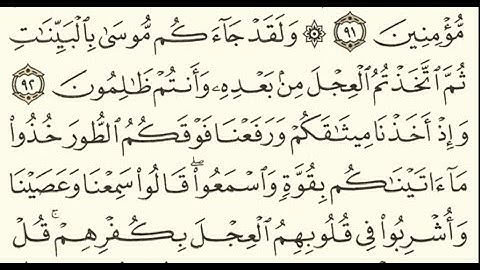 مُّؤْمِنِينَ ٩١ ۞ وَلَقَدْ جَآءَكُم مُّوسَىٰ بِٱلْبَيِّنَٰتِ
ثُمَّ ٱتَّخَذْتُمُ ٱلْعِجْلَ مِنۢ بَعْدِهِۦ وَأَنتُمْ ظَٰلِمُونَ ٩٢
وَإِذْ أَخَذْنَا مِيثَٰقَكُمْ وَرَفَعْنَا فَوْقَكُمُ ٱلطُّورَ خُذُوا۟
مَآ ءَاتَيْنَٰكُم بِقُوَّةٍ وَٱسْمَعُوا۟ ۖ قَالُوا۟ سَمِعْنَا وَعَصَيْنَا
وَأُشْرِبُوا۟ فِى قُلُوبِهِمُ ٱلْعِجْلَ بِكُفْرِهِمْ ۚ قُلْ